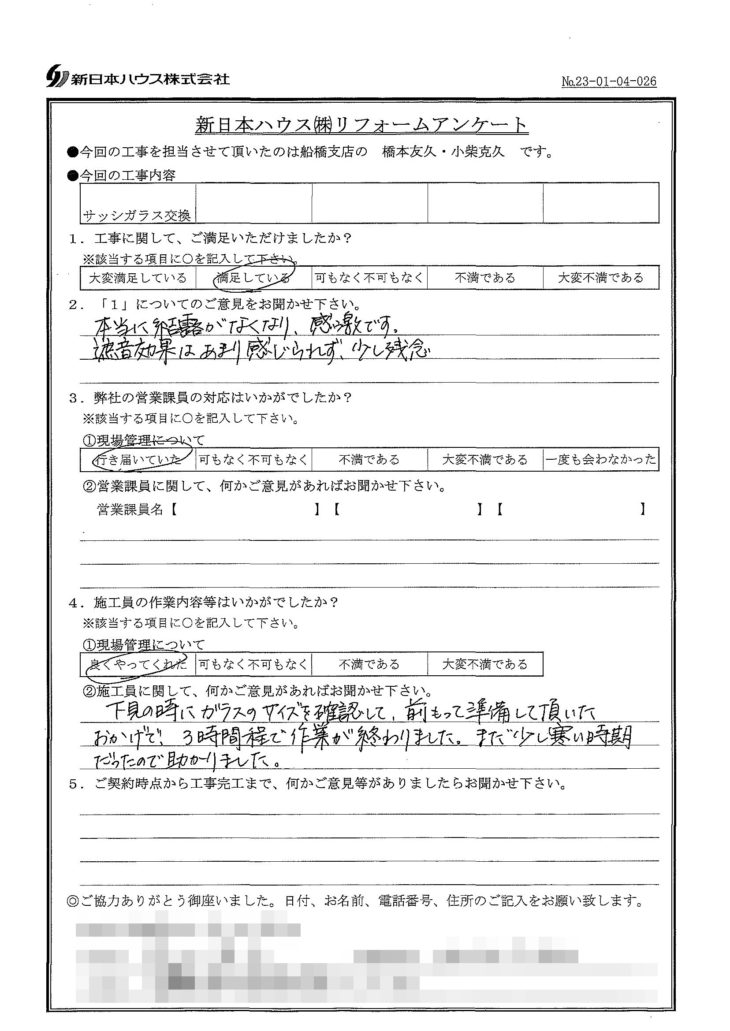 新日本ハウス株式会社
№23-01-04-026
新日本ハウス㈱リフォームアンケート
●今回の工事を担当させて頂いたのは船橋支店の 橋本友久・小柴克久 です。
●今回の工事内容
サッシガラス交換
1．工事に関して、ご満足いただけましたか？
※該当する項目に○を記入して下さい。
大変満足している 満足している 可もなく不可もなく 不満である 大変不満である
2．「1」についてのご意見をお聞かせ下さい。
本当に結露がなくなり、感激です。
遮音効果はあまり感じられず、少し残念
3．弊社の営業課員の対応はいかがでしたか？
※該当する項目に○を記入して下さい。
①現場管理について
行き届いていた 可もなく不可もなく 不満である 大変不満である 一度も会わなかった
②営業課員に関して、何かご意見があればお聞かせ下さい。
営業課員名【 】【 】【 】
4．施工員の作業内容等はいかがでしたか？
※該当する項目に○を記入して下さい。
①現場管理について
良くやってくれた 可もなく不可もなく 不満である 大変不満である
②施工員に関して、何かご意見があればお聞かせ下さい。
下見の時にガラスのサイズを確認して、前もって準備して頂いた
おかげで、3時間程で作業が終わりました。まだ少し寒い時期
だったので助かりました。
5．ご契約時点から工事完工まで、何かご意見等がありましたらお聞かせ下さい。
◎ご協力ありがとう御座いました。日付、お名前、電話番号、住所のご記入をお願い致します。